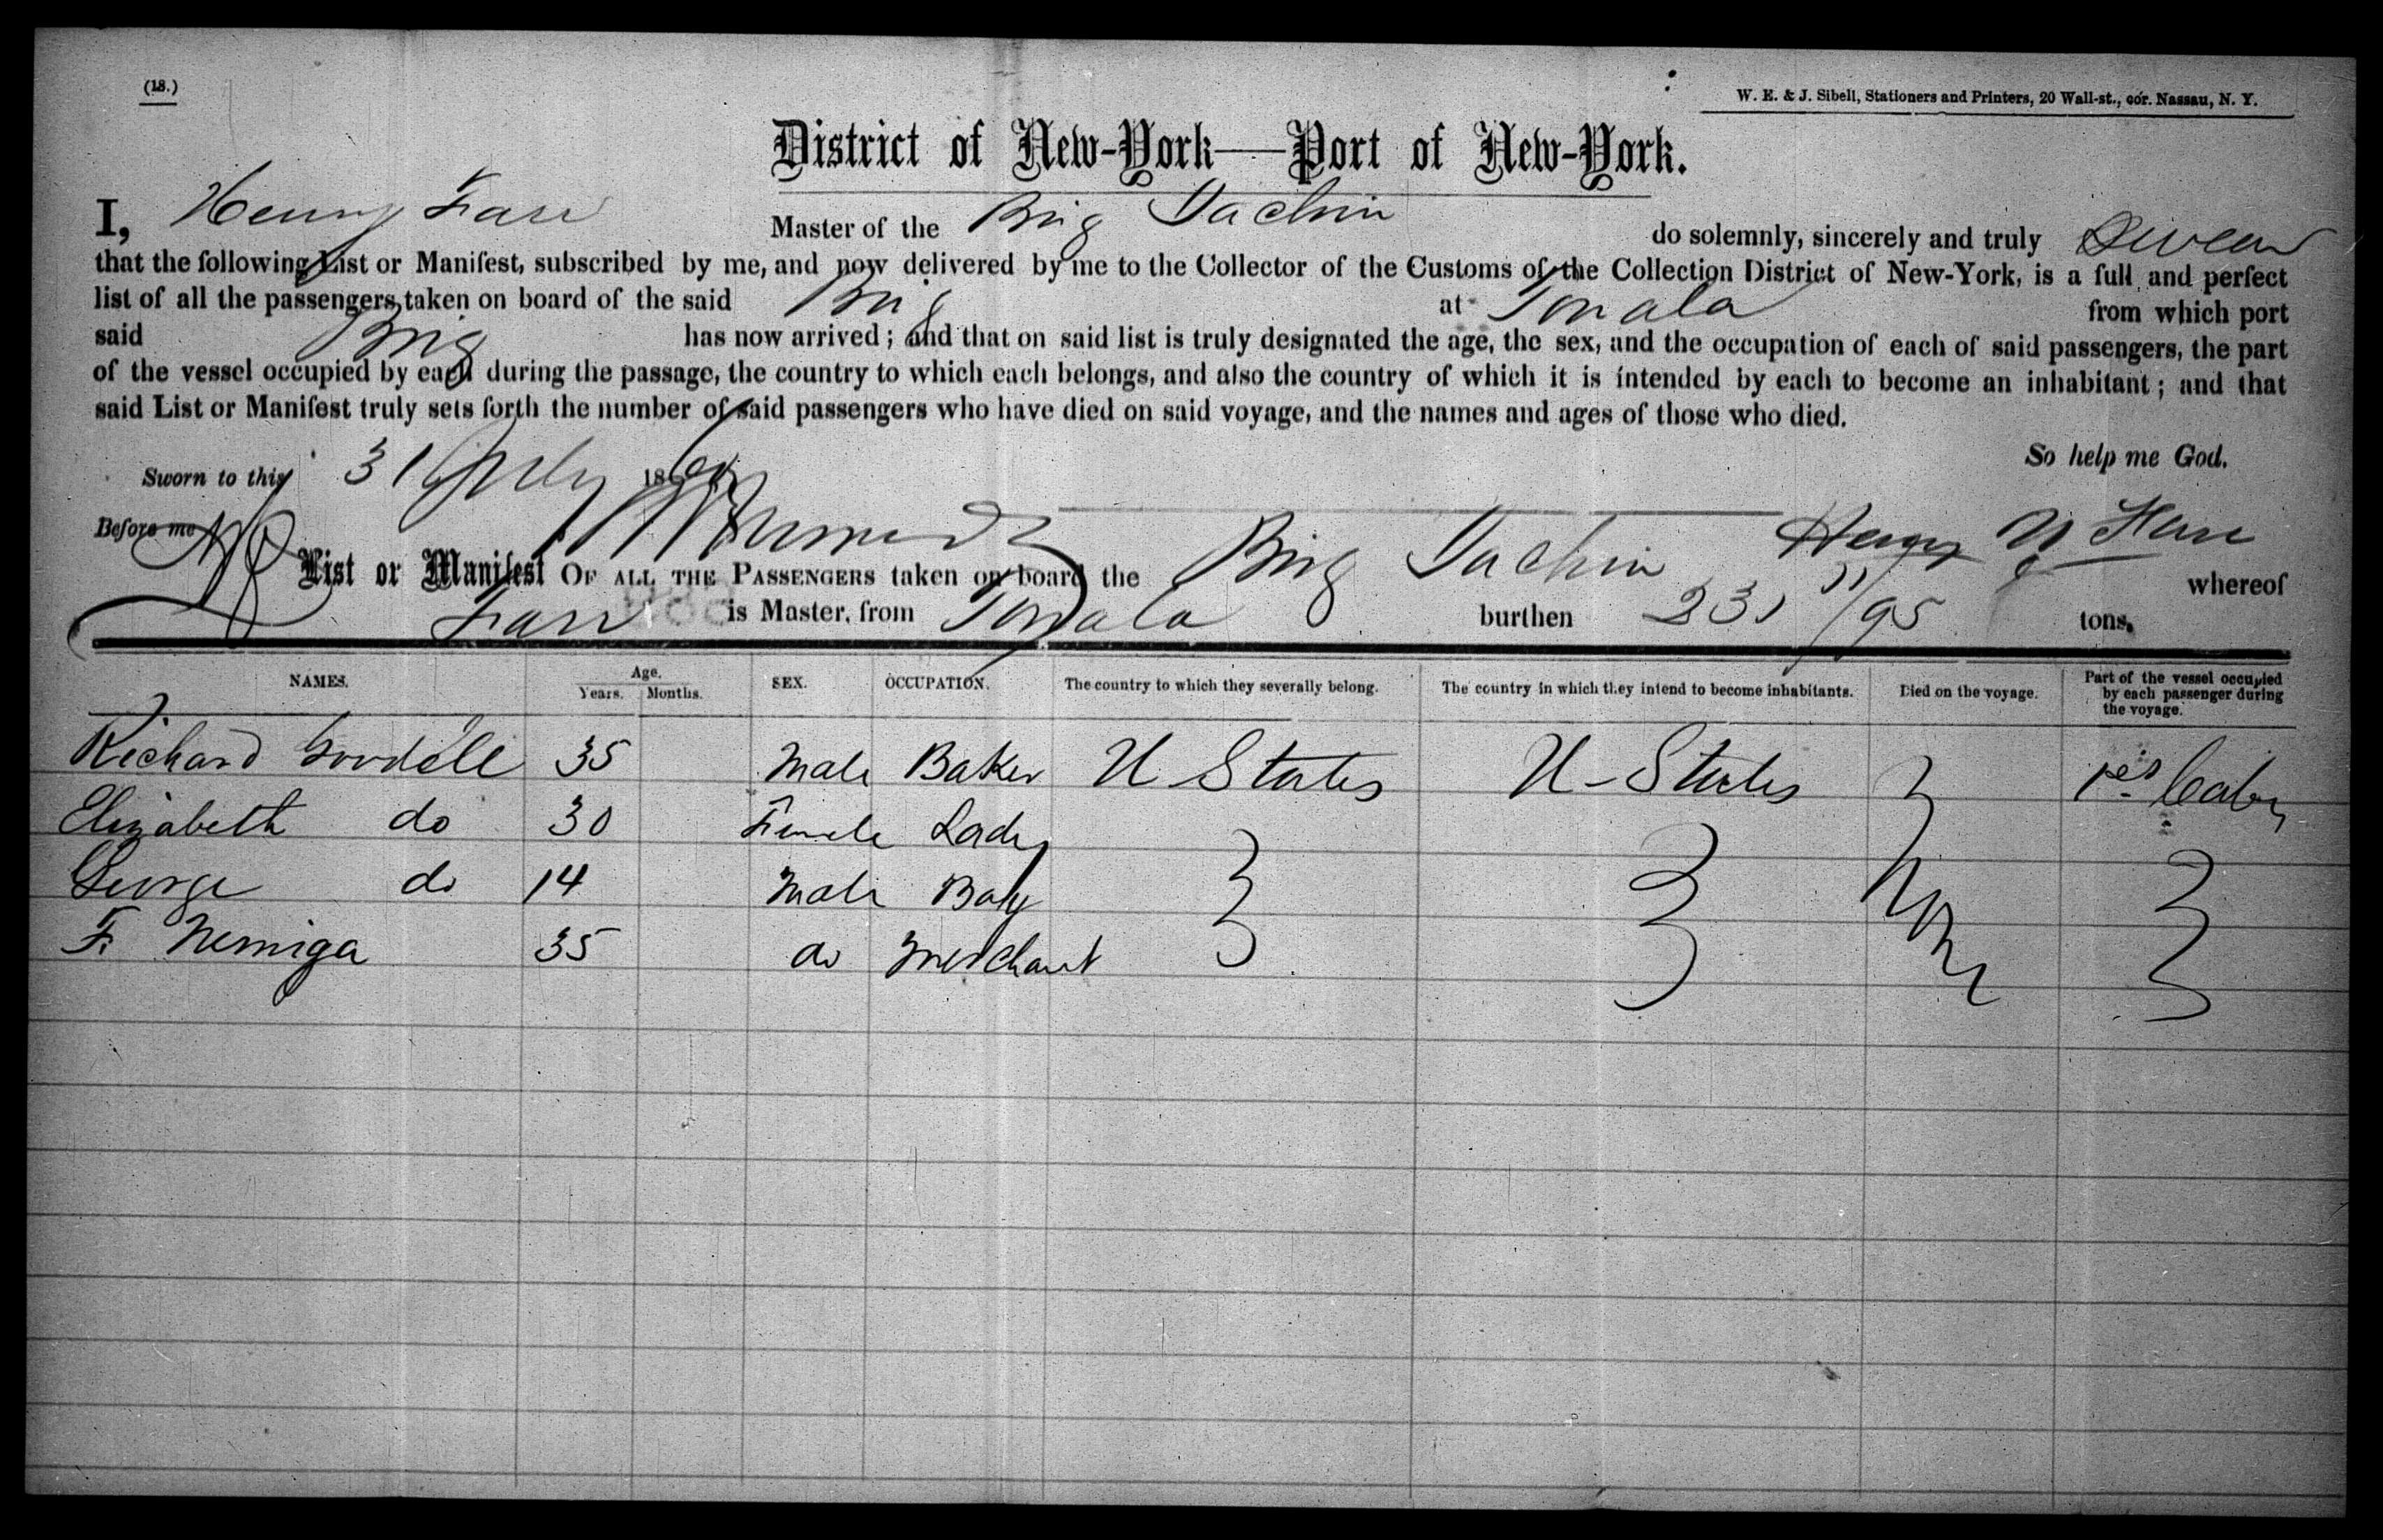 (18.)
W. E. & J. Sibell, Stationers and Printers, 20 Wall-st., cor. Nassau, N. Y.
District of New-York—Port of New-York.
I, Henry Farr Master of the Brig Jachin do solemnly, sincerely and truly Swear
that the following List or Manifest, subscribed by me, and now delivered by me to the Collector of the Customs of the Collection District of New-York, is a full and perfect
list of all the passengers taken on board of the said Brig at Tonala from which port
said Brig has now arrived; and that on said list is truly designated the age, the sex, and the occupation of each of said passengers, the part
of the vessel occupied by each during the passage, the country to which each belongs, and also the country of which it is intended by each to become an inhabitant; and that
said List or Manifest truly sets forth the number of said passengers who have died on said voyage, and the names and ages of those who died.
So help me God.
Sworn to this 31 July 186
Before me Henry
List or Manifest OF ALL THE PASSENGERS taken on board the Brig Jachin whereof
Farr is Master, from Tonala burthen 231 /95 tons.
NAMES. Age. Years. Months. SEX. OCCUPATION. The country to which they severally belong. The country in which they intend to become inhabitants. Died on the voyage. Part of the vessel occupied by each passenger during the voyage.
Richard Goodell 35 Male Baker U States U-States 1st Cabin
Elizabeth do 30 Female Lady
George do 14 Male Boy
F. Nemiga 35 do Merchant